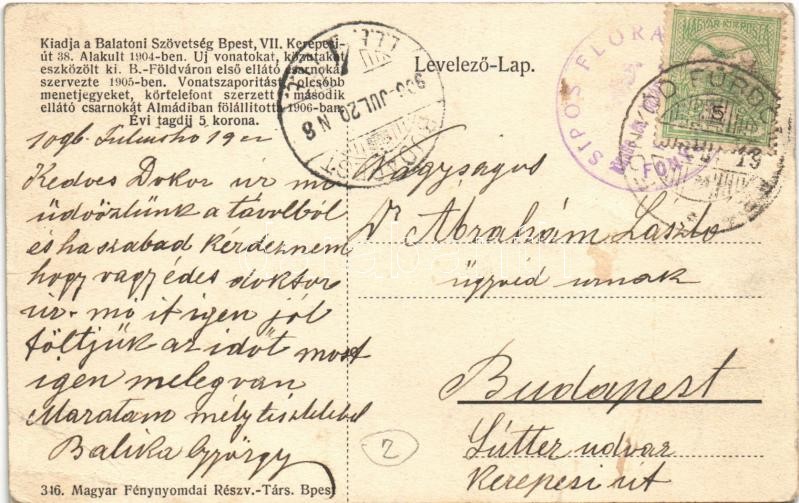 Kiadja a Balatoni Szövetség Bpest, VII. Kerepesi-
út 38. Alakult 1904-ben. Uj vonatokat, közutakat
eszközölt ki. B.-Földváron első ellátó csarnokát
szervezte 1905-ben. Vonatszaporitást, olcsóbb
menetjegyeket, körtelefont szerzett s második
ellátó csarnokát Almádiban fölállította 1906-ban.
Évi tagdij 5 korona.
Levelező-Lap.
SIPOS FLÓRA
FONYÓD
MAGYAR KIR. POSTA
5
FONYÓD FÜRDŐ
19
BUDAPEST
906 JUL. 20. N 8
Julusho 19
Kedves Doktor úr mi
üdvözlünk a távolból
és ha szabad kérdeznem
hogy vagy édes doktor
úr- mi it igen jól
töltjük az időt most
igen meleg van
Maratam mély tisztelettel
Balika György
Nagyságos
Dr Ábrahám László
ügyvéd urnak
Budapest
Lütter udvar
Kerepesi út
2
346. Magyar Fénynyomdai Részv.-Társ. Bpest